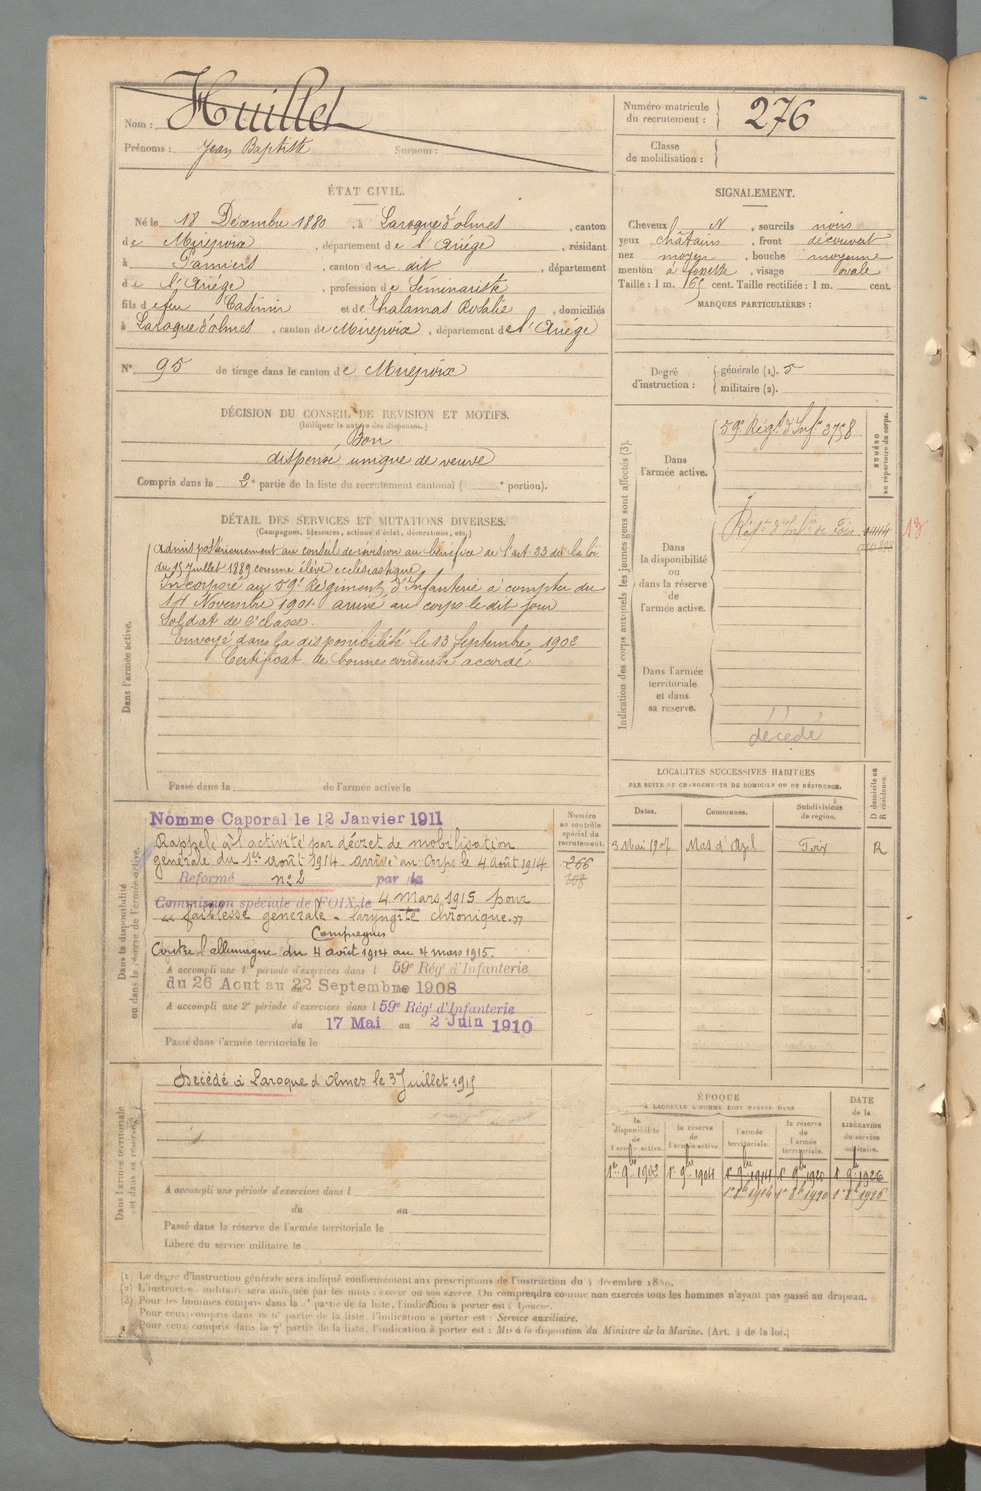 Nom : Huillet
Prénoms : Jean Baptiste Surnom :
Numéro matricule du recrutement : 276
Classe de mobilisation :
ÉTAT CIVIL.
Né le 18 Décembre 1880, à Laroque d'olmes, canton
de Mirepoix, département de l'Ariége, résidant
à Pamiers, canton du dit, département
de l'Ariége, profession de Séminariste
fils de feu Casimir et de Thalamas Rosalie, domiciliés
à Laroque d'olmes, canton de Mirepoix, département de l'Ariége
N° 95 de tirage dans le canton de Mirepoix
SIGNALEMENT.
Cheveux N, sourcils noirs
yeux châtains, front découvert
nez moyen, bouche moyenne
menton à fossette, visage ovale
Taille : 1 m. 65 cent. Taille rectifiée : 1 m. cent.
MARQUES PARTICULIÈRES :
Degré d'instruction : générale (1). 5
militaire (2).
DÉCISION DU CONSEIL DE REVISION ET MOTIFS.
(Indiquer la nature des dispenses.)
Bon
dispensé unique de veuve
Compris dans la 2e partie de la liste du recrutement cantonal ( e portion).
DÉTAIL DES SERVICES ET MUTATIONS DIVERSES.
(Campagnes, blessures, actions d'éclat, décorations, etc.)
Dans l'armée active.
admis postérieurement au conseil de révision au bénéfice de l'art. 23 de la loi
du 15 Juillet 1889 comme élève ecclésiastique
Incorporé au 59e Régiment d'Infanterie à compter du
14 Novembre 1901. arrivé au corps le dit jour
Soldat de 2e classe.
Envoyé dans la disponibilité le 13 Septembre 1902
Certificat de bonne conduite accordé
Passé dans la de l'armée active le
Indication des corps auxquels les jeunes gens sont affectés (3).
NUMÉRO au répertoire du corps.
Dans l'armée active.
59e Régt d'Infie 3758
Dans la disponibilité ou dans la réserve de l'armée active.
Régt d'Infie de Foix
13
Dans l'armée territoriale et dans sa réserve.
décédé
LOCALITÉS SUCCESSIVES HABITÉES
PAR SUITE DE CHANGEMENTS DE DOMICILE OU DE RÉSIDENCE.
D domicile ou R résidence.
Dates. Communes. Subdivisions de région.
3 Mai 1907 Mas d'Azil Foix R
Dans la disponibilité ou dans la réserve de l'armée active.
Numéro au contrôle spécial du recrutement.
266
108
Nommé Caporal le 12 Janvier 1911
Rappelé à l'activité par décret de mobilisation
générale du 1er août 1914. arrivé au Corps le 4 août 1914
Reformé n° 2 par la
Commission spéciale de FOIX le 4 mars 1915 pour
" faiblesse générale - laryngite chronique "
Campagnes
Contre l'allemagne du 4 août 1914 au 4 mars 1915.
A accompli une 1re période d'exercices dans l 59e Régt d'Infanterie
du 26 Aout au 22 Septembre 1908
A accompli une 2e période d'exercices dans l 59e Régt d'Infanterie
du 17 Mai au 2 Juin 1910
Passé dans l'armée territoriale le
Dans l'armée territoriale et dans sa réserve.
Décédé à Laroque d'Olmes le 3 Juillet 1915
A accompli une période d'exercices dans l
du au
Passé dans la réserve de l'armée territoriale le
Libéré du service militaire le
ÉPOQUE
À LAQUELLE L'HOMME DOIT PASSER DANS
la disponibilité de l'armée active. la réserve de l'armée active. l'armée territoriale. la réserve de l'armée territoriale. DATE de la LIBÉRATION du service militaire.
1er 9bre 1902 1er 9bre 1904 1er 9bre 1914 1er 9bre 1920 1er 9bre 1926
1er 8bre 1914 1er 8bre 1920 1er 8bre 1926
(1) Le degré d'instruction générale sera indiqué conformément aux prescriptions de l'instruction du 4 décembre 1889.
(2) L'instruction militaire sera indiquée par les mots : exercé ou non exercé. On comprendra comme non exercés tous les hommes n'ayant pas passé au drapeau.
(3) Pour les hommes compris dans la partie de la liste, l'indication à porter est : Ajourné.
Pour ceux compris dans la partie de la liste, l'indication à porter est : Service auxiliaire.
Pour ceux compris dans la 7e partie de la liste, l'indication à porter est : Mis à la disposition du Ministre de la Marine. (Art. 4 de la loi.)